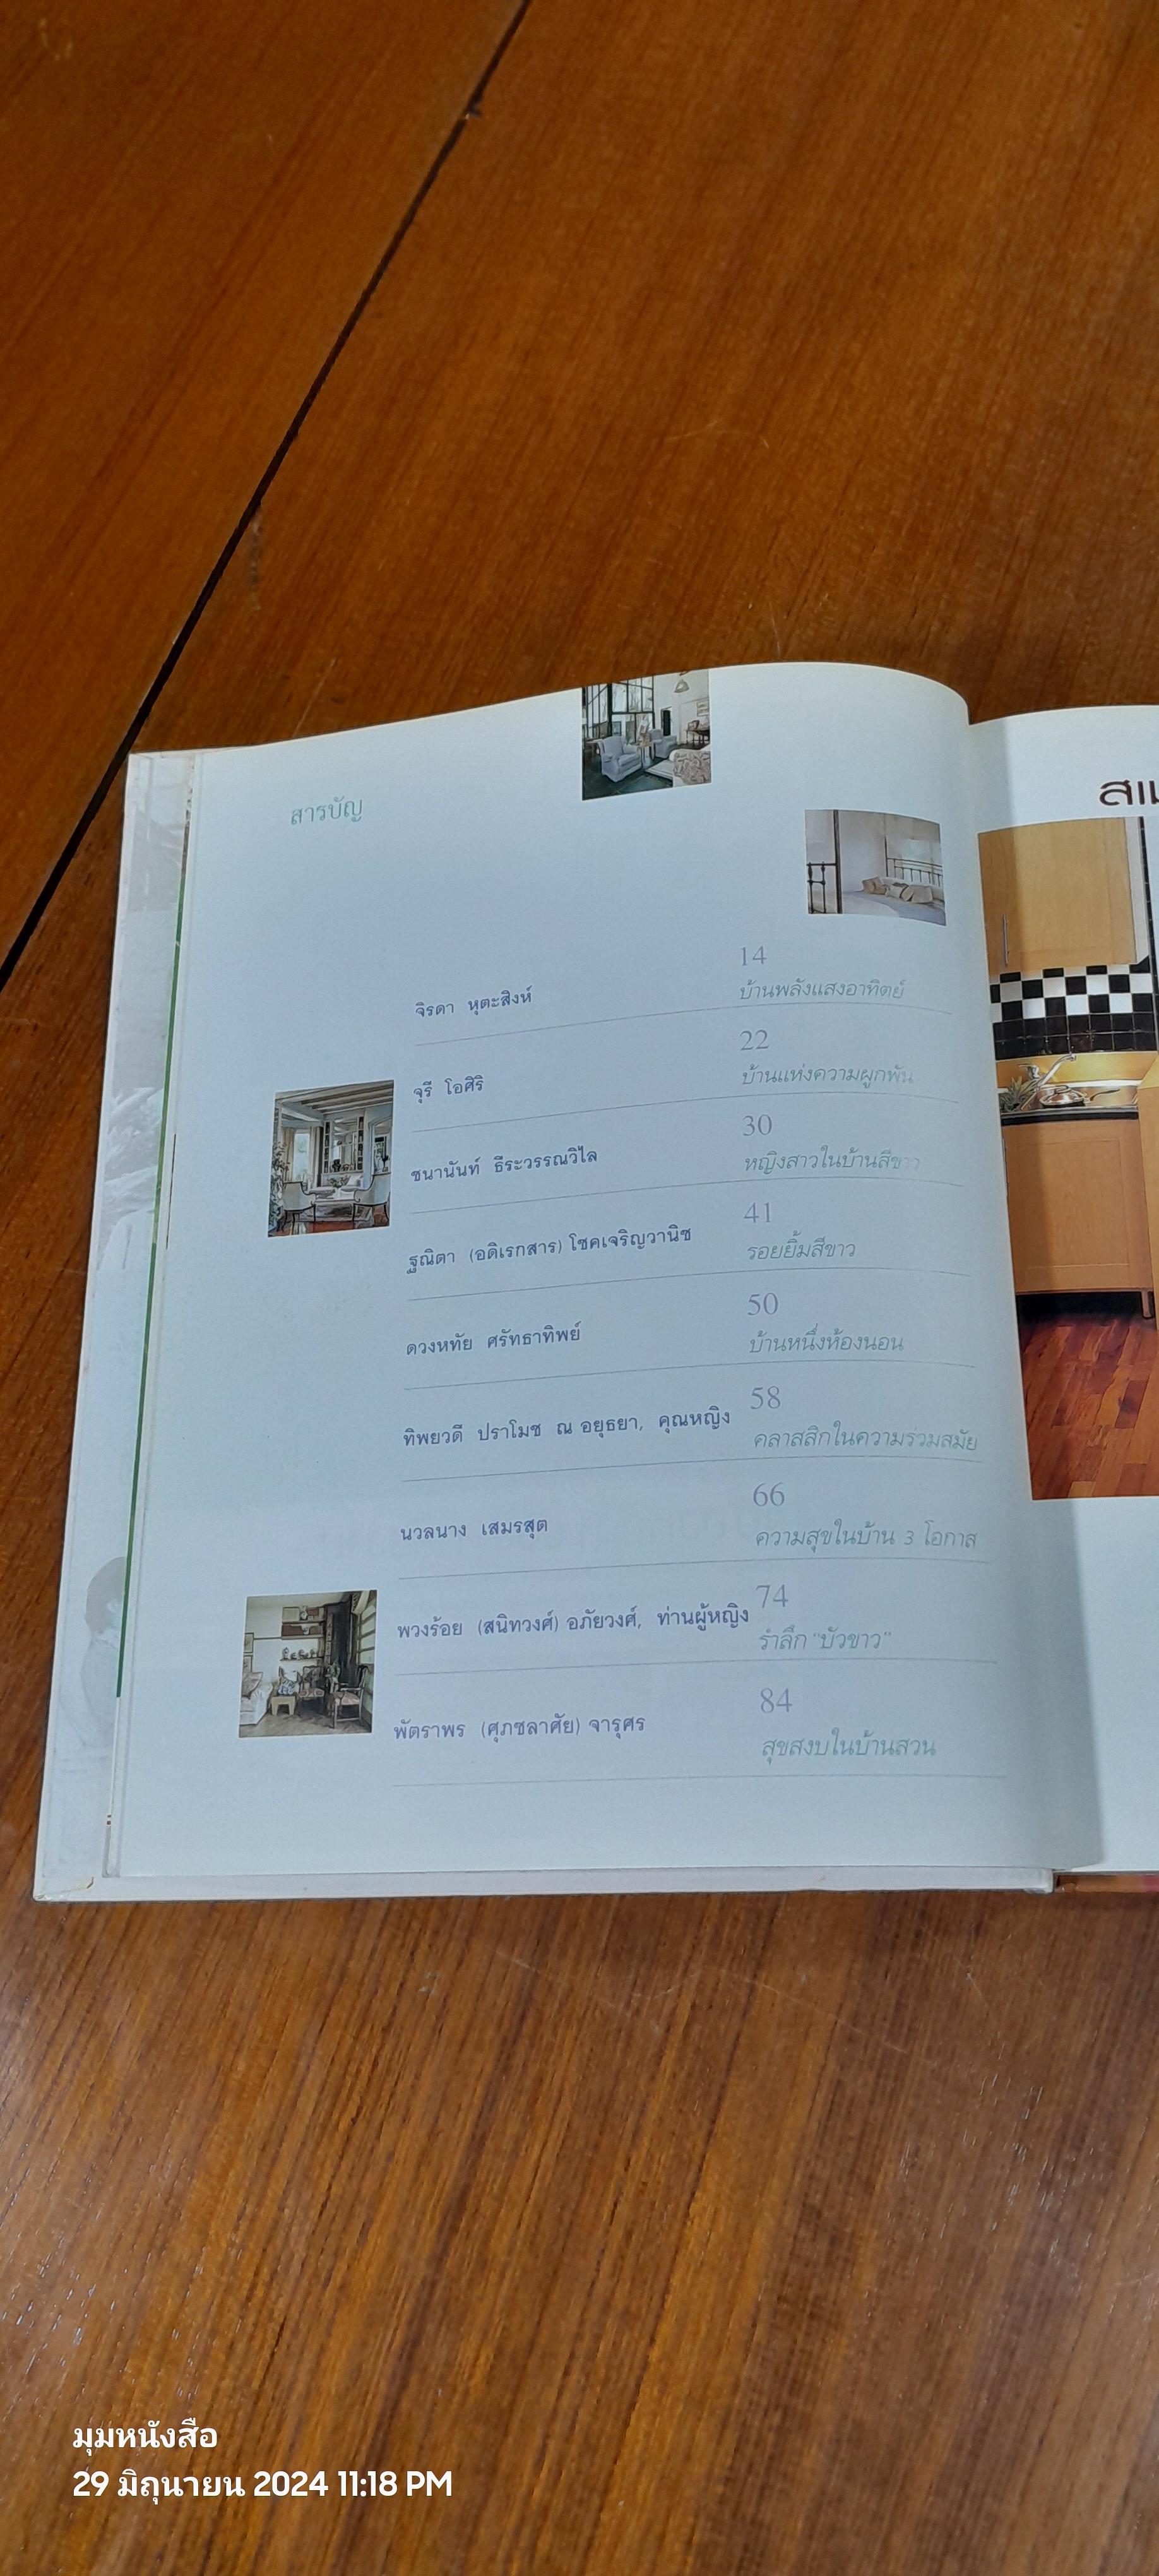 สารบัญ
14
จิรดา หุตะสิงห์ บ้านพลังแสงอาทิตย์
22
จุรี โอศิริ บ้านแห่งความผูกพัน
30
ชนานันท์ ธีระวรรณวิไล หญิงสาวในบ้านสีขาว
41
ฐณิตา (อดิเรกสาร) โชคเจริญวานิช รอยยิ้มสีขาว
50
ดวงหทัย ศรัทธาทิพย์ บ้านหนึ่งห้องนอน
58
ทิพยวดี ปราโมช ณ อยุธยา, คุณหญิง คลาสสิกในความร่วมสมัย
66
นวลนาง เสมรสุต ความสุขในบ้าน 3 โอกาส
74
พวงร้อย (สนิทวงศ์) อภัยวงศ์, ท่านผู้หญิง รำลึก "บัวขาว"
84
พัตราพร (ศุภชลาศัย) จารุศร สุขสงบในบ้านสวน
มุมหนังสือ
29 มิถุนายน 2024 11:18 PM